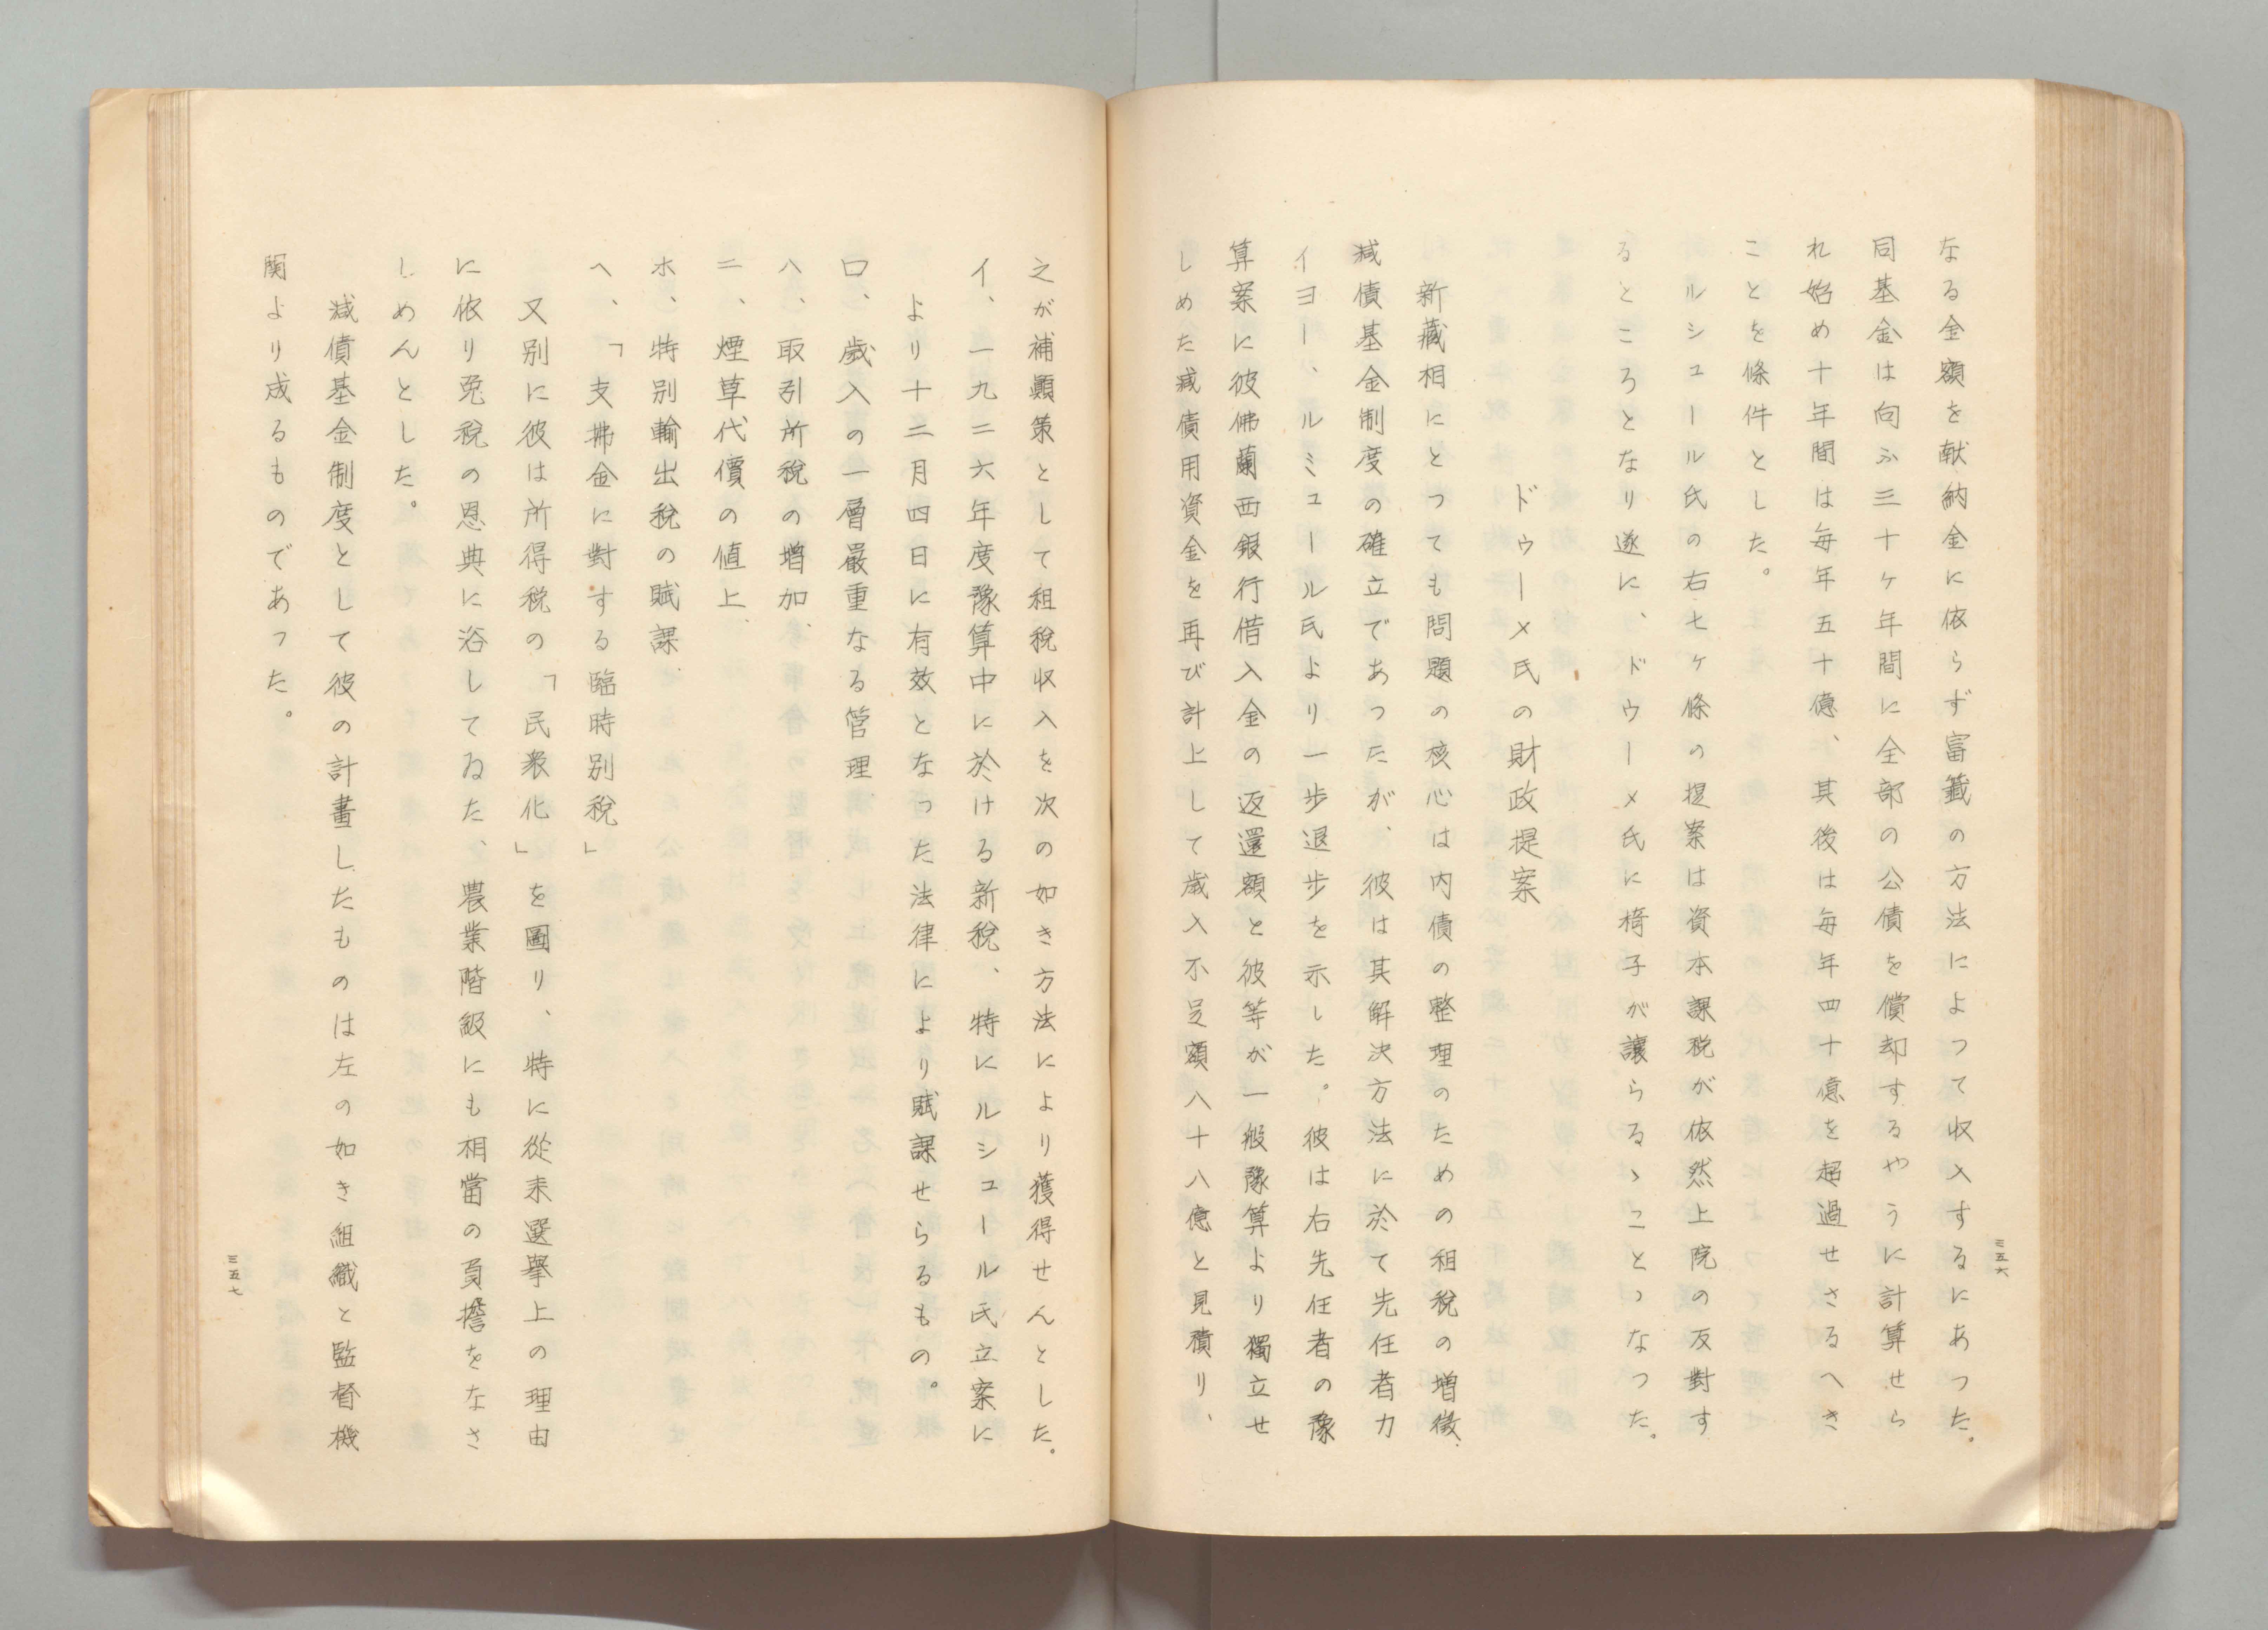 なる金額を献納金に依らず富籤の方法によつて収入するにあつた。
同基金は向ふ三十ヶ年間に全部の公債を償却するやうに計算せら
れ始め十年間は毎年五十億、其後は毎年四十億を超過せさるへき
ことを條件とした。
ルシュール氏の右七ヶ條の提案は資本課税が依然上院の反對す
るところとなり遂に、ドウーメ氏に椅子が讓らるゝことゝなつた。
ドゥーメ氏の財政提案
新藏相にとつても問題の核心は内債の整理のための租税の増徴、
減債基金制度の確立であつたが、彼は其解決方法に於て先任者カ
イヨー、ルミュール氏より一歩退歩を示した。彼は右先任者の豫
算案に彼佛蘭西銀行借入金の返還額と彼等が一般豫算より獨立せ
しめた減債用資金を再び計上して歳入不足額八十八億と見積り、
三五六
之が補顚策として租税収入を次の如き方法により獲得せんとした。
イ、一九二六年度豫算中に於ける新税、特にルシュール氏立案に
より十二月四日に有效となつた法律により賦課せらるもの。
ロ、歳入の一層嚴重なる管理、
ハ、取引所税の増加、
ニ、煙草代價の値上、
ホ、特別輸出税の賦課、
ヘ、「支拂金に對する臨時別税」
又別に彼は所得税の「民衆化」を圖り、特に從来選擧上の理由
に依り免税の恩典に浴してゐた、農業階級にも相當の負擔をなさ
しめんとした。
減債基金制度として彼の計畫したものは左の如き組織と監督機
関より成るものであつた。
三五七